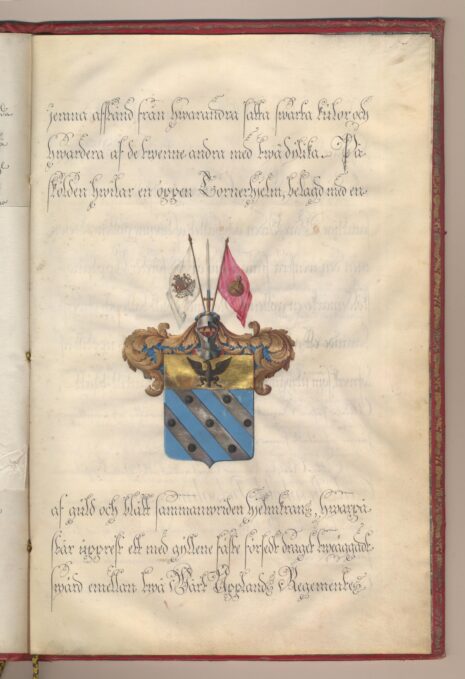 jemna affstånd från hwarandra satta swarta kulor och
hwardera af de twenne andra med twå dylika. På
skölden hwilar en öppen Tornerhielm, belagd med en
af guld och blått sammanwriden Hielmkrans, hwarpå
står uprest ett med gyllene fäste försedt draget twäggadt
swärd emellan twå Wårt Upplands Regementes